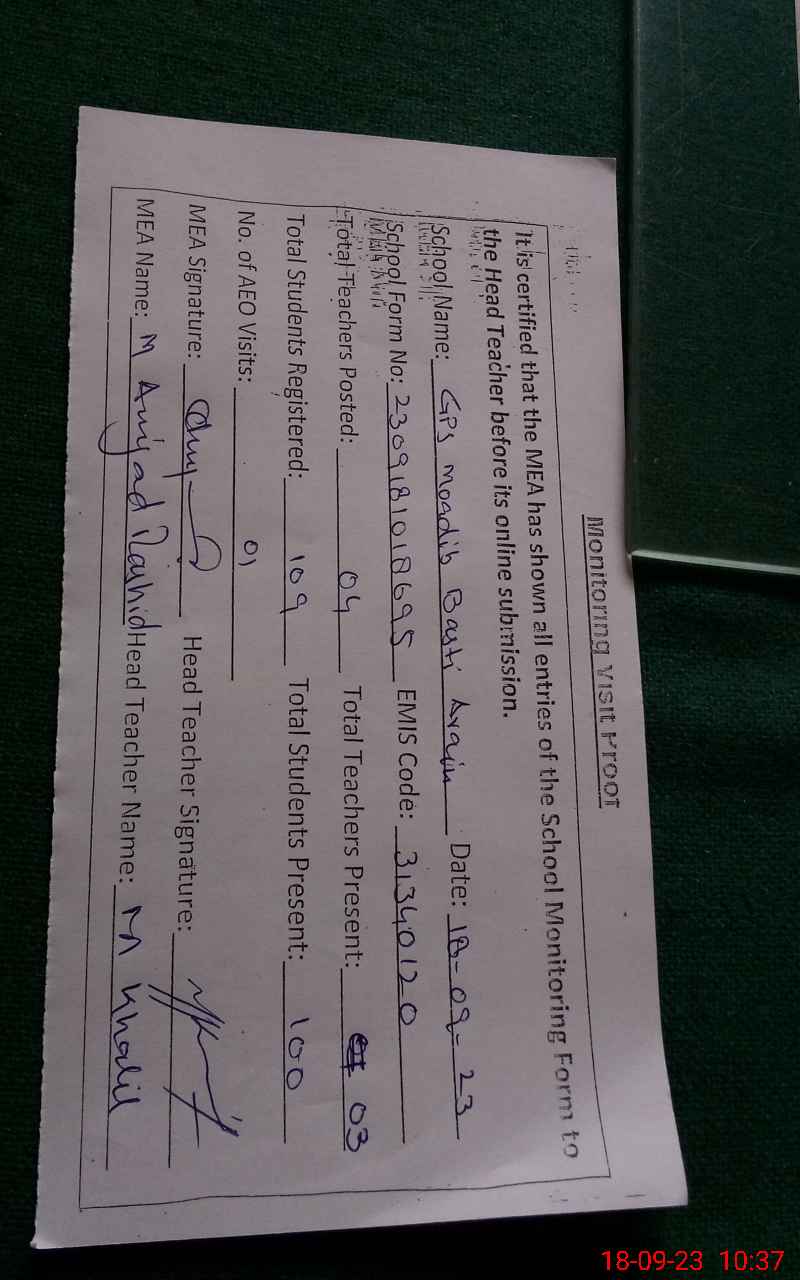 Monitoring Visit Proof
It is certified that the MEA has shown all entries of the School Monitoring Form to
the Head Teacher before its online submission.
School Name: GPS Moadib Basti Arain Date: 18-09-23
School Form No: 2309181018695 EMIS Code: 31340120
Total Teachers Posted: 04 Total Teachers Present: 03
Total Students Registered: 109 Total Students Present: 100
No. of AEO Visits: 01
MEA Signature: Head Teacher Signature:
MEA Name: M Amjad Rashid Head Teacher Name: M Khalil
18-09-23 10:37